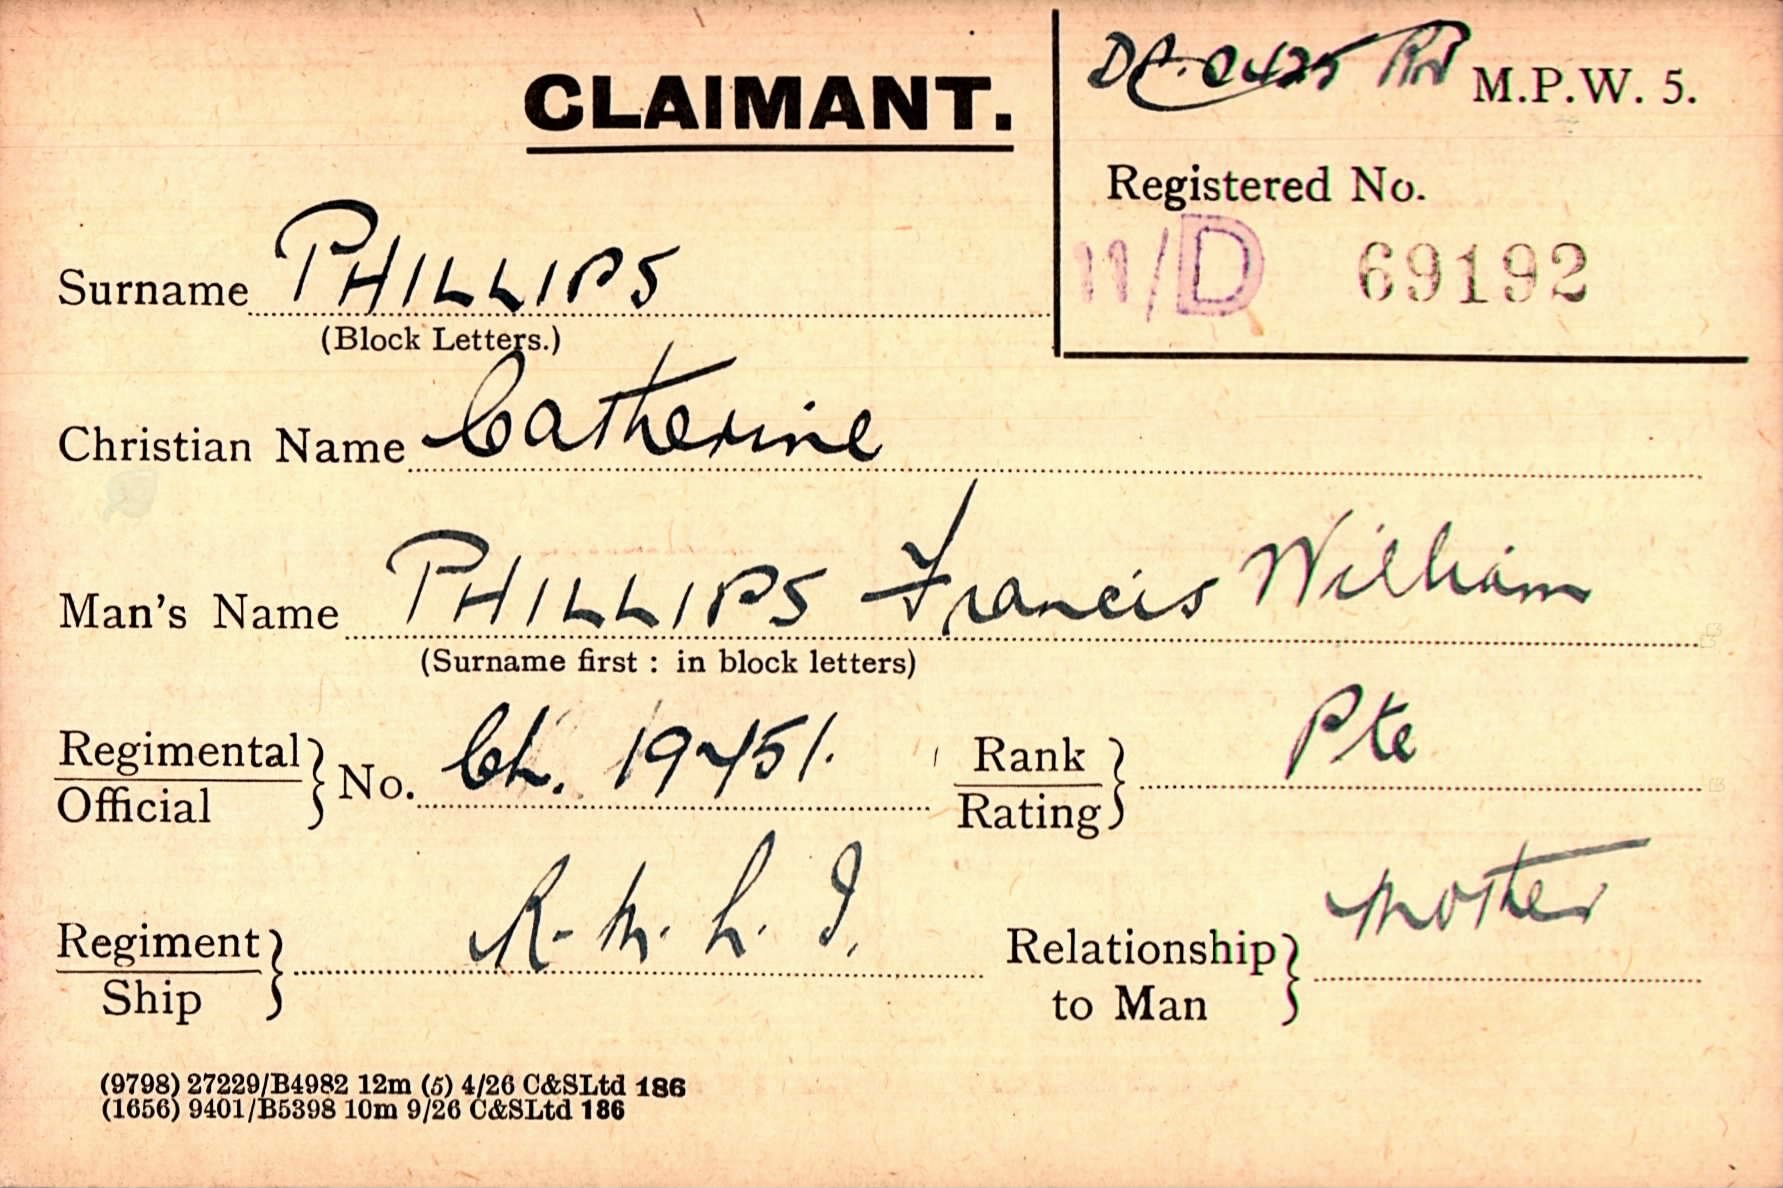 CLAIMANT.
M.P.W. 5.
Registered No.
11/D 69192
Surname PHILLIPS
(Block Letters.)
Christian Name Catherine
Man's Name PHILLIPS Francis William
(Surname first : in block letters)
Regimental
Official
No. Ch. 19451.
Rank
Rating
Pte
Regiment
Ship
R. M. L. I.
Relationship
to Man
Mother
(9798) 27229/B4982 12m (5) 4/26 C&SLtd 186
(1656) 9401/B5398 10m 9/26 C&SLtd 186